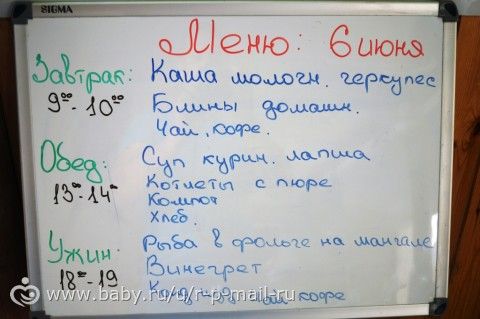 SIGMA
Меню: 6 июня
Завтрак: Каша молочн. геркулес
9⁰⁰-10⁰⁰ Блины домашн.
Чай, кофе.
Обед: Суп курин. лапша
13-14 Котлеты с пюре
Компот
Хлеб.
Ужин: Рыба в фольге на мангале
18-19 Винегрет
чай кофе
www.baby.ru/u/r-p-mail-ru